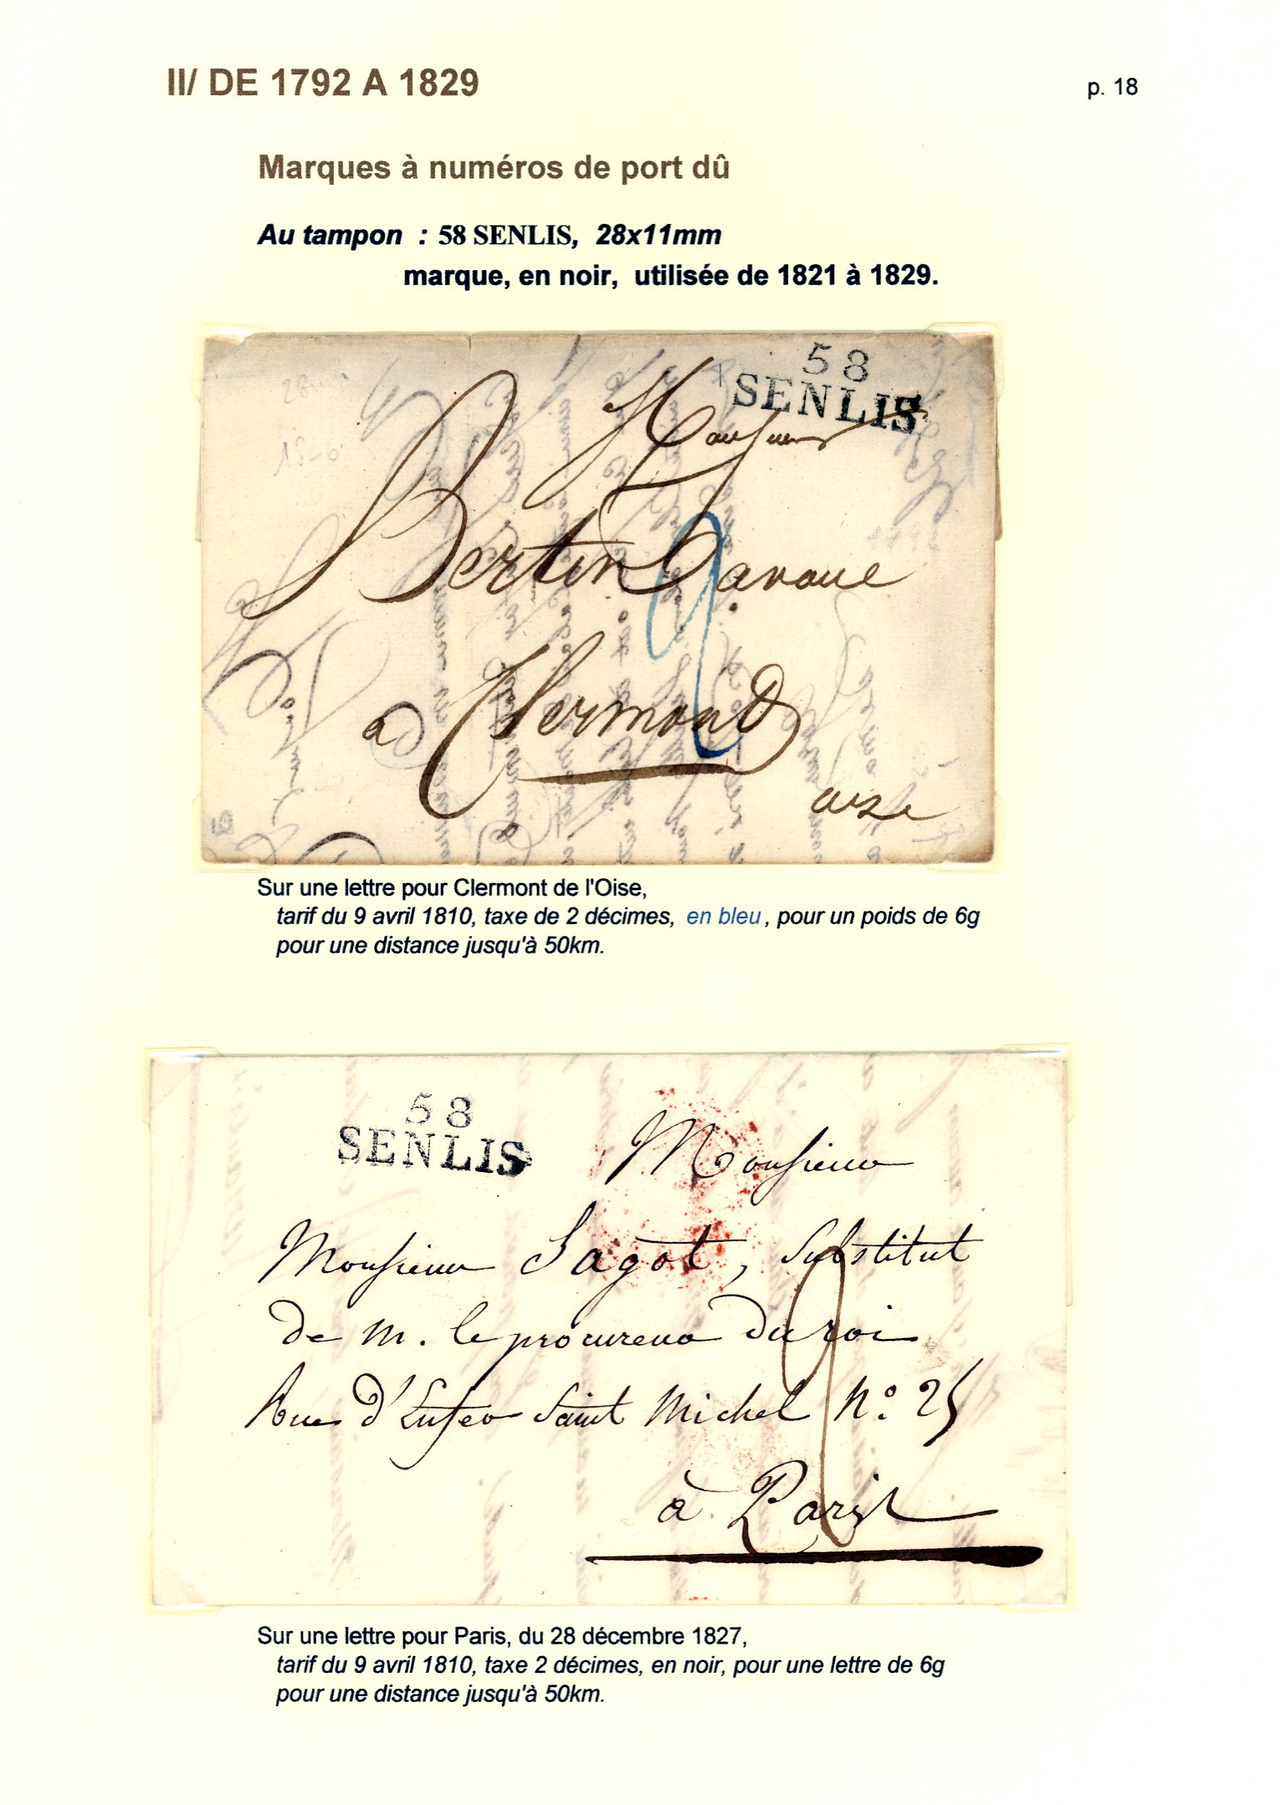 II/ DE 1792 A 1829
p. 18
Marques à numéros de port dû
Au tampon : 58 SENLIS, 28x11mm
marque, en noir, utilisée de 1821 à 1829.
58
SENLIS
Monsieur
Bertin avoue
2
a Clermond
oise
Sur une lettre pour Clermont de l'Oise,
tarif du 9 avril 1810, taxe de 2 décimes, en bleu, pour un poids de 6g
pour une distance jusqu'à 50km.
58
SENLIS
Monsieur
Monsieur Sagot, Substitut
de M. le procureur du roi
Rue d'Enfer Saint Michel N.º 25
2
à Paris
Sur une lettre pour Paris, du 28 décembre 1827,
tarif du 9 avril 1810, taxe 2 décimes, en noir, pour une lettre de 6g
pour une distance jusqu'à 50km.